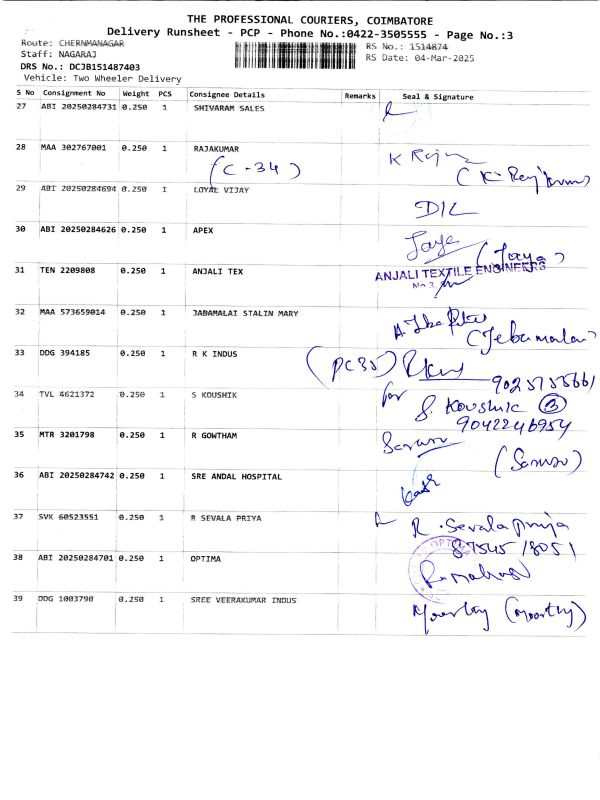 THE PROFESSIONAL COURIERS, COIMBATORE
Delivery Runsheet - PCP - Phone No.:0422-3505555 - Page No.:3
Route: CHERNMANAGAR RS No.: 1514874
Staff: NAGARAJ RS Date: 04-Mar-2025
DRS No.: DCJB151487403
Vehicle: Two Wheeler Delivery
S No Consignment No Weight PCS Consignee Details Remarks Seal & Signature
27 ABI 20250284731 0.250 1 SHIVARAM SALES
28 MAA 302767001 0.250 1 RAJAKUMAR
(C-34)
29 ABI 20250284694 0.250 1 LOYAL VIJAY
30 ABI 20250284626 0.250 1 APEX
(Jaya)
31 TEN 2209808 0.250 1 ANJALI TEX ANJALI TEXTILE ENGINEERS
32 MAA 573659014 0.250 1 JABAMALAI STALIN MARY
33 DDG 394185 0.250 1 R K INDUS
(PC35)
34 TVL 4621372 0.250 1 S KOUSHIK for S. Koushik
9042246954
35 MTR 3201798 0.250 1 R GOWTHAM
36 ABI 20250284742 0.250 1 SRE ANDAL HOSPITAL
37 SVK 60523551 0.250 1 R SEVALA PRIYA R. Sevala priya
38 ABI 20250284701 0.250 1 OPTIMA
39 DDG 1003790 0.250 1 SREE VEERAKUMAR INDUS (Moorthy)